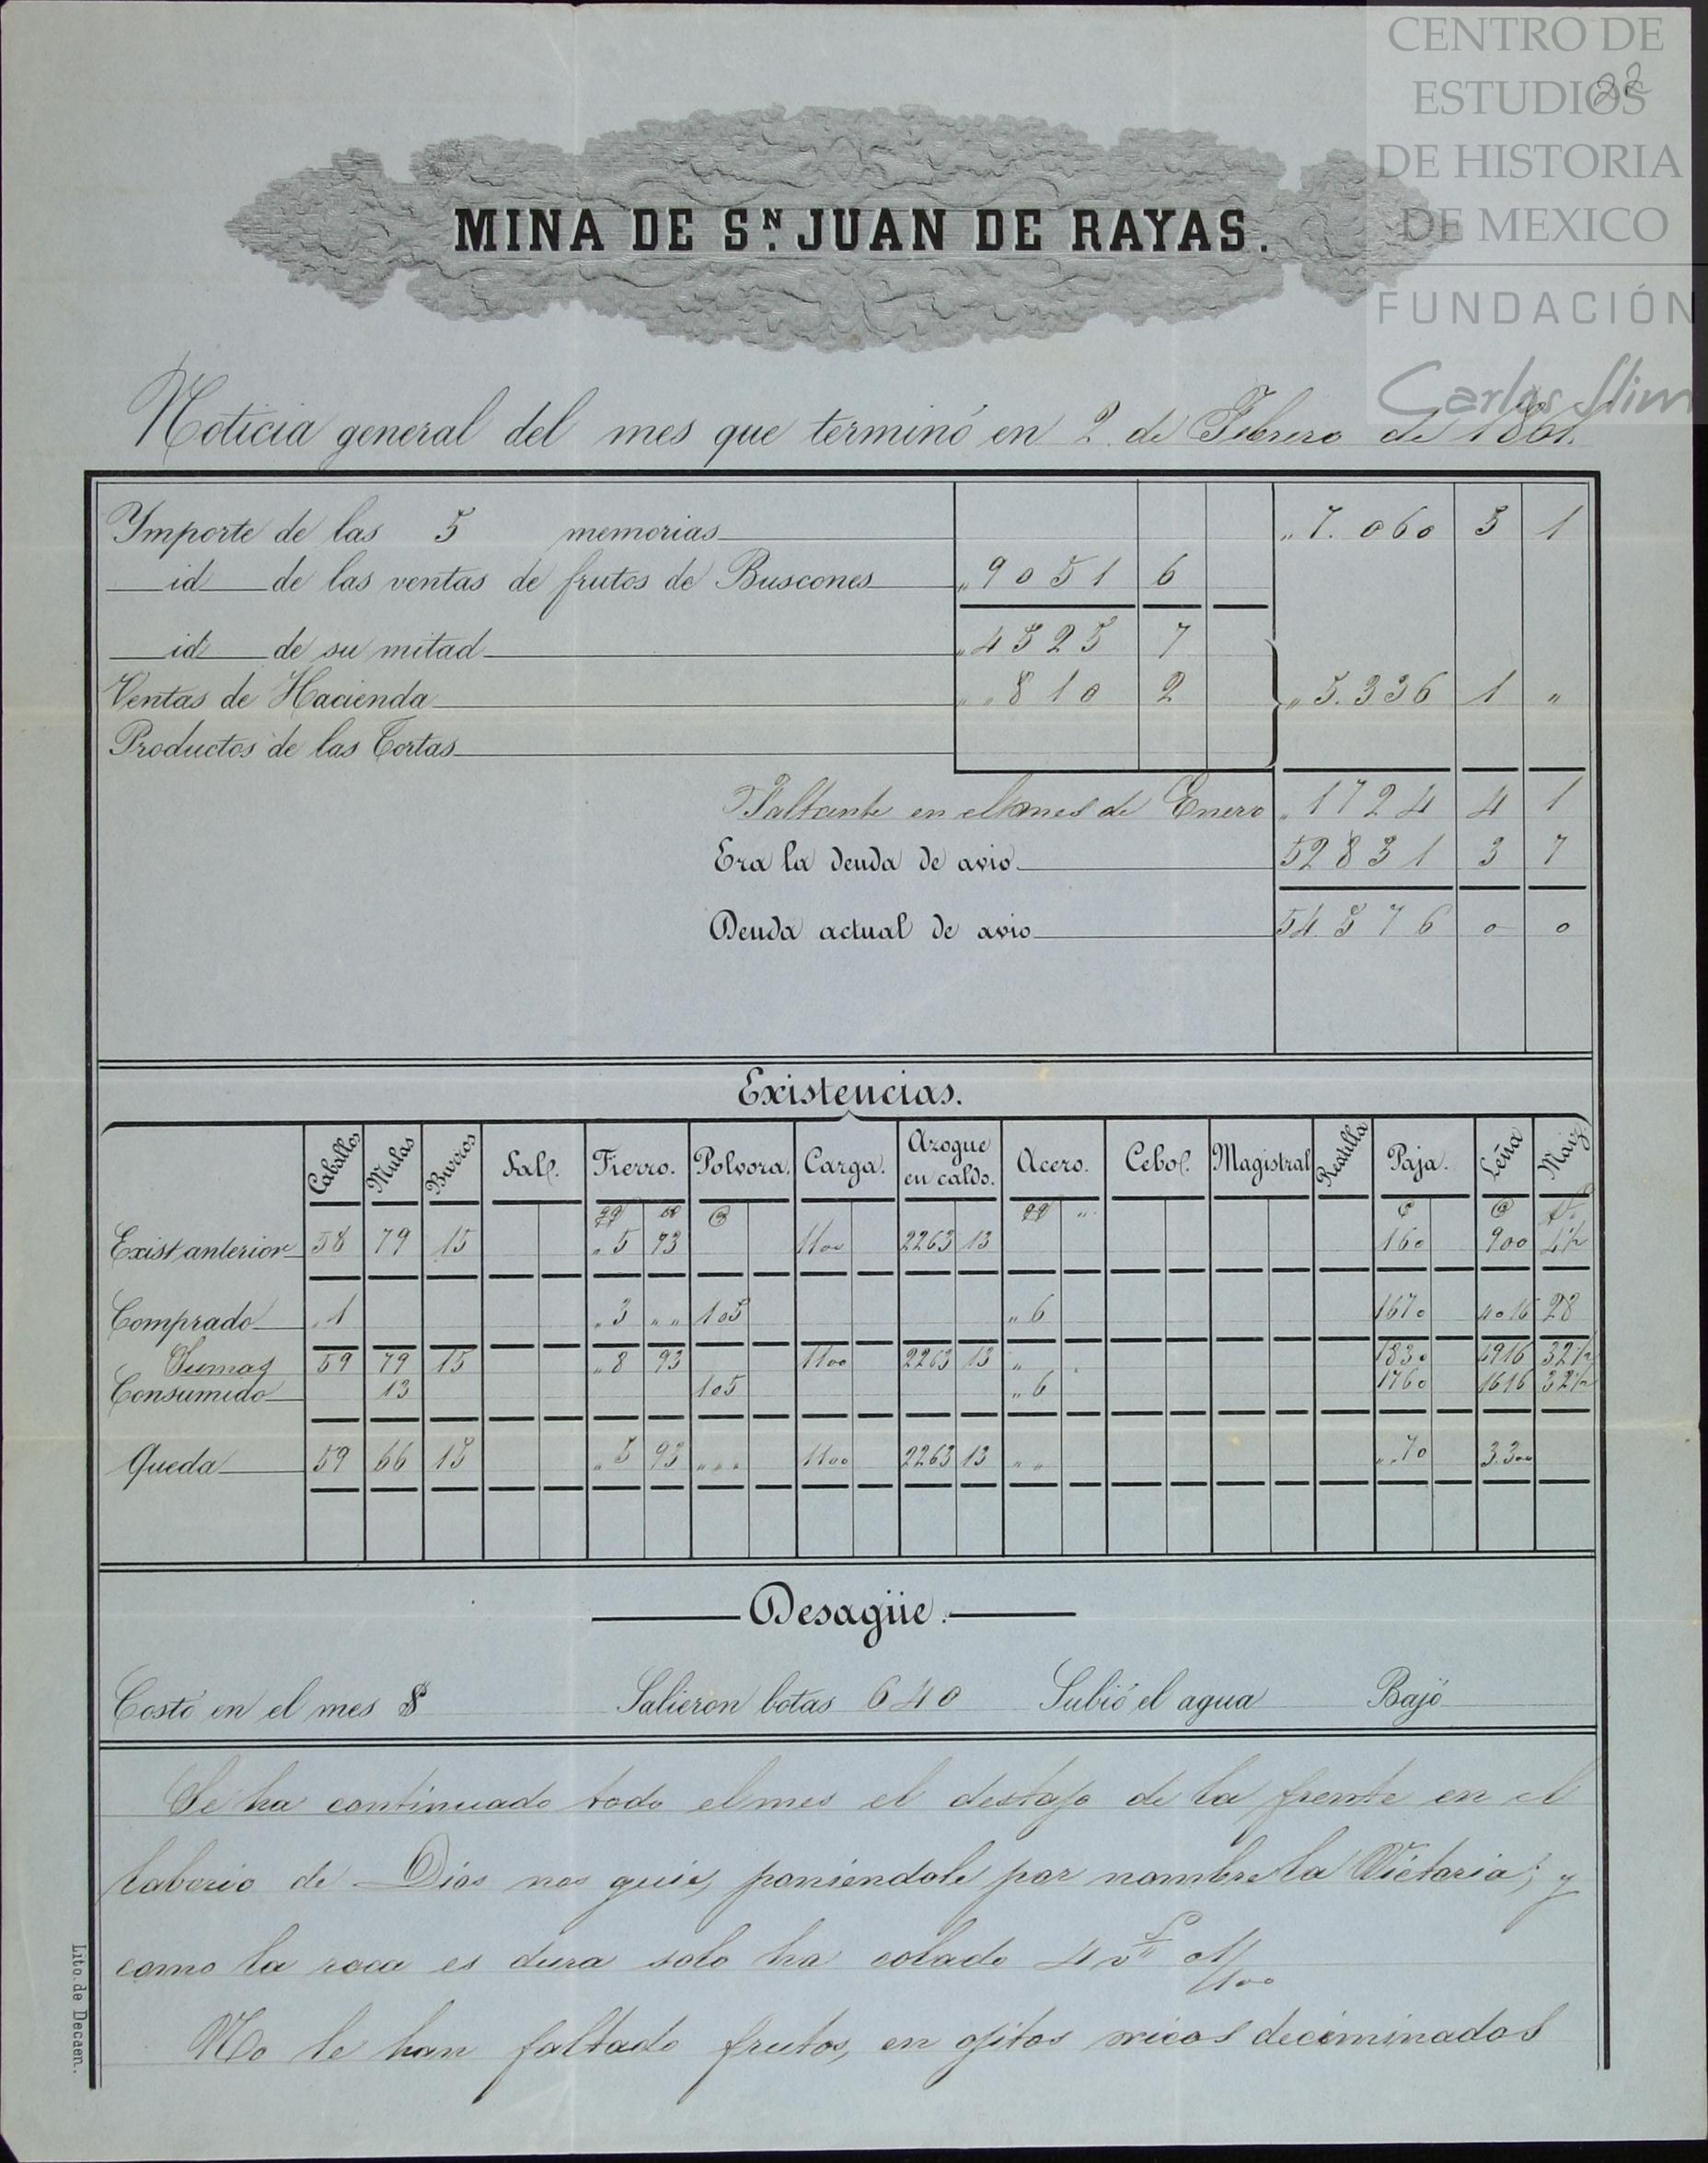 CENTRO DE
ESTUDIOS
DE HISTORIA
DE MEXICO
FUNDACIÓN
Carlos Slim
22
MINA DE Sⁿ. JUAN DE RAYAS.
Noticia general del mes que terminó en 2 de Febrero de 1861.
Ymporte de las 5 memorias „7.060 5 1
id de las ventas de frutos de Buscones „9051 6
id de su mitad „4525 7
Ventas de Hacienda „„810 2 „5.336 1 „
Productos de las Tortas
Faltante en el mes de Enero „1724 4 1
Era la deuda de avio 52831 3 7
Deuda actual de avio 54.576 0 0
Existencias.
Caballos Mulas Burros Sal. Fierro. Polvora. Carga. Azogue en caldo. Acero. Cebo. Magistral Rastilla Paja. Leña Maiz
Exist anterior 58 79 15 „5 93 1100 2263 13 160 900 4½
Comprado „1 „3 „„ 105 „6 1670 4016 28
Sumas 59 79 15 „8 93 1100 2263 13 „ 1830 4916 32½
Consumido 13 105 „6 1760 1616 32½
Queda 59 66 15 „5 93 „„„ 1100 2263 13 „„ „„70 3.300
Desagüe.
Costó en el mes $ Salieron botas 640 Subió el agua Bajó
Se ha continuado todo el mes el destajo de la frente en el
laborio de Dios nos guie, poniendole por nombre la Victoria; y
como la roca es dura solo ha colado 4 
No le han faltado frutos, en ojitos ricos deciminados
Lito. de Decaen.